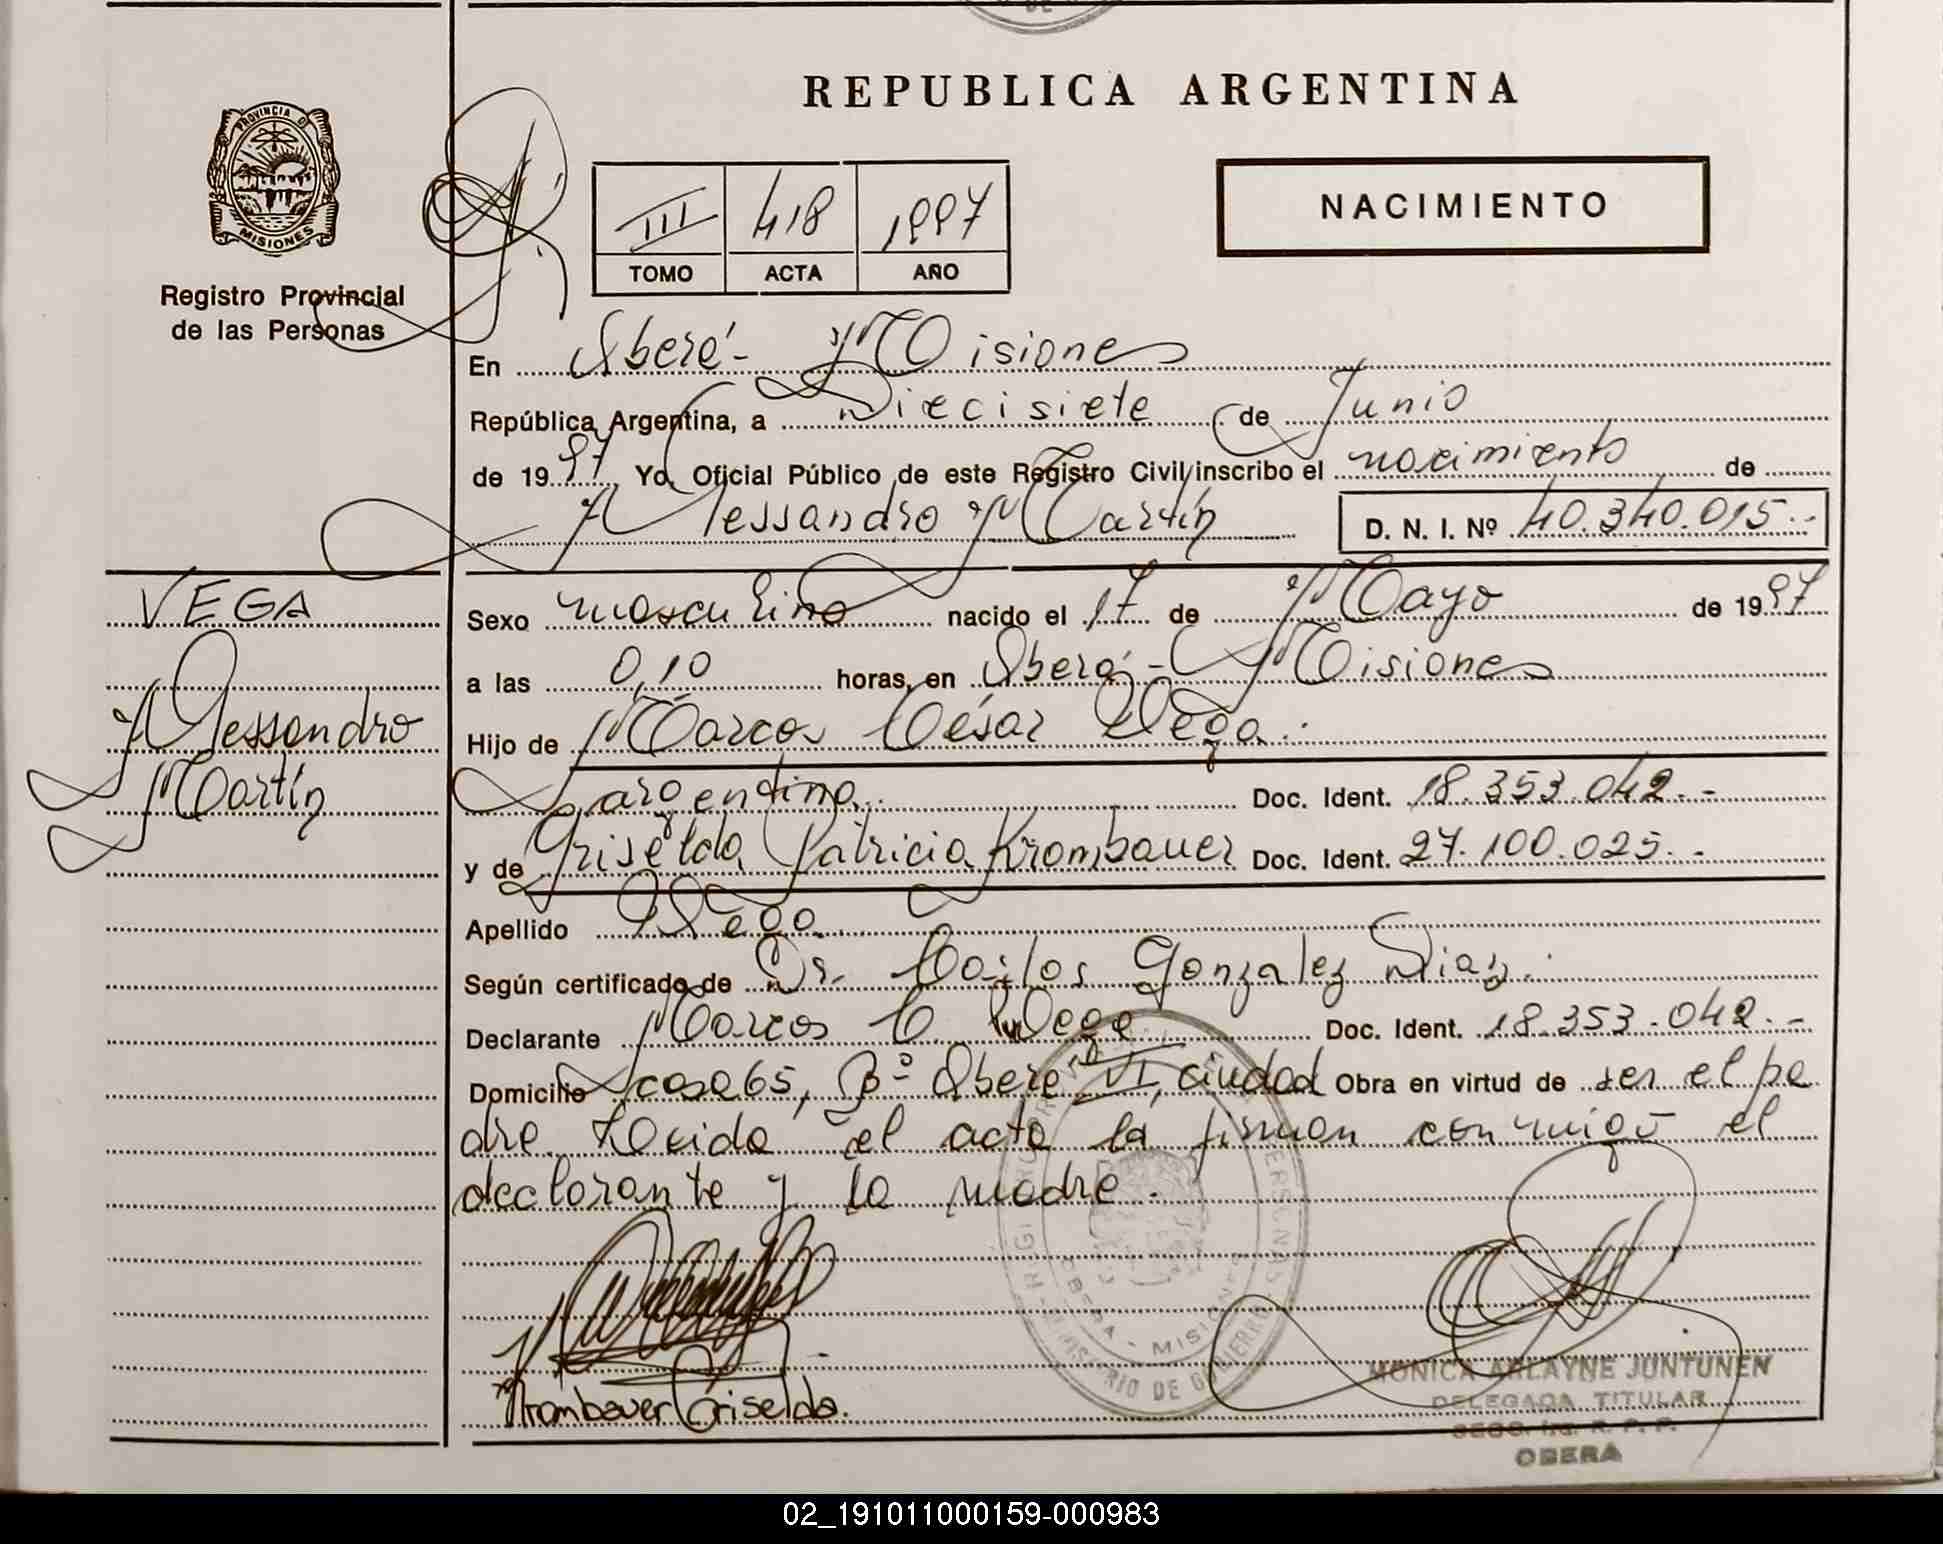 DE
REPUBLICA ARGENTINA
PROVINCIA DE
MISIONES
Registro Provincial
de las Personas
III 418 1997
TOMO ACTA AÑO
NACIMIENTO
En Oberá - Misiones
República Argentina, a Diecisiete de Junio
de 1997 Yo, Oficial Público de este Registro Civil inscribo el nacimiento de
Alessandro Martín D. N. I. Nº 40.340.015.-
VEGA
Alessandro
Martín
Sexo masculino nacido el 17 de Mayo de 1997
a las 0,10 horas, en Oberá - Misiones
Hijo de Marcos César Vega.
argentino. Doc. Ident. 18.353.042.-
y de Griselda Patricia Krombauer Doc. Ident. 27.100.025.-
Apellido Vega
Según certificado de Dr. Carlos Gonzalez Diaz.
Declarante Marcos C. Vega Doc. Ident. 18.353.042.-
Domicilio casa 65, Bº Oberá VI, ciudad Obra en virtud de ser el pa
dre. Leída el acta la firman conmigo el
declarante y la madre.
OBERA - MISIONES
MINISTERIO DE GOBIERNO
Krombauer Griselda.
MONICA ARLAYNE JUNTUNEN
DELEGADA TITULAR
R. P. P.
OBERA
02_191011000159-000983